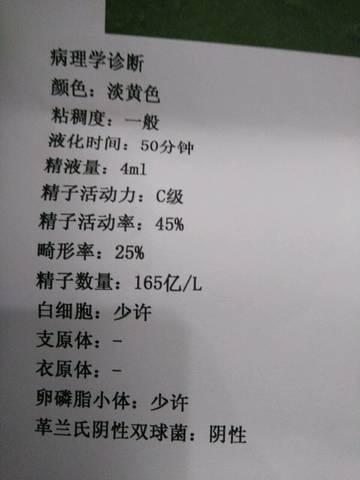 病理学诊断
颜色：淡黄色
粘稠度：一般
液化时间：50分钟
精液量：4ml
精子活动力：C级
精子活动率：45%
畸形率：25%
精子数量：165亿/L
白细胞：少许
支原体：-
衣原体：-
卵磷脂小体：少许
革兰氏阴性双球菌：阴性